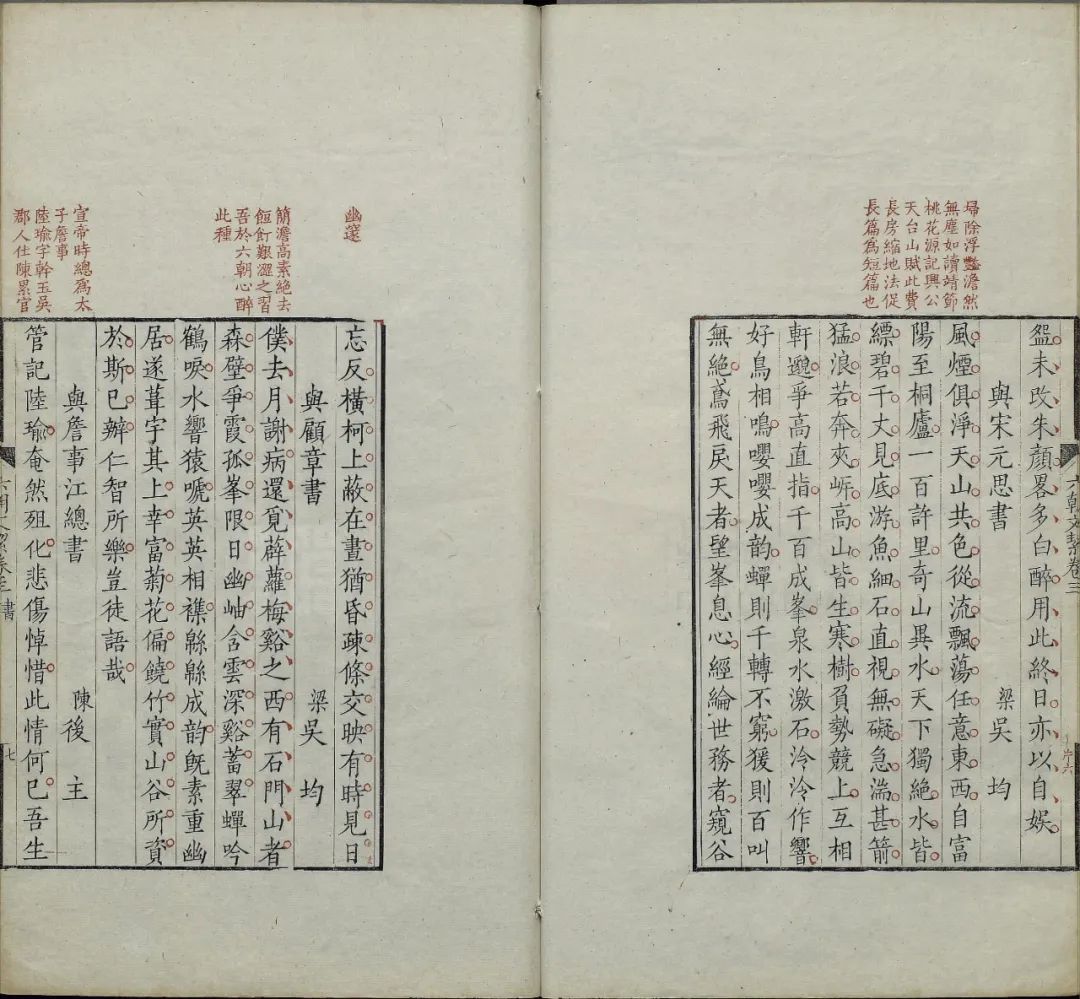 鴛未改朱顏畧多白醉用此終日亦以自娛
與宋元思書 梁吳 均
風煙俱淨天山共色從流飄蕩任意東西自富
陽至桐廬一百許里奇山異水天下獨絶水皆
縹碧千丈見底游魚細石直視無礙急湍甚箭
猛浪若奔夾㟁高山皆生寒樹負勢競上互相
軒邈爭高直指千百成峯泉水激石泠泠作響
好鳥相鳴嚶嚶成韵蟬則千轉不窮猨則百叫
無絶鳶飛戾天者望峯息心經綸世務者窺谷
掃除浮豔澹然
無塵如讀靖節
桃花源記興公
天台山賦此費
長房縮地法促
長篇爲短篇也
六朝文絜卷三
忘反橫柯上蔽在晝猶昏疎條交映有時見日
與顧章書 梁吳 均
僕去月謝病還覓薜蘿梅谿之西有石門山者
森壁爭霞孤峯限日幽岫含雲深谿蓄翠蟬吟
鶴唳水響猿嗁英英相襍緜緜成韵旣素重幽
居遂葺宇其上幸富菊花偏饒竹實山谷所資
於斯已辦仁智所樂豈徒語哉
與詹事江總書 陳後 主
管記陸瑜奄然殂化悲傷悼惜此情何已吾生
幽邃
簡澹高素絶去
餖飣艱澀之習
吾於六朝心醉
此種
宣帝時總爲太
子詹事
陸瑜字幹玉吳
郡人仕陳累官
六朝文絜卷三 書
七